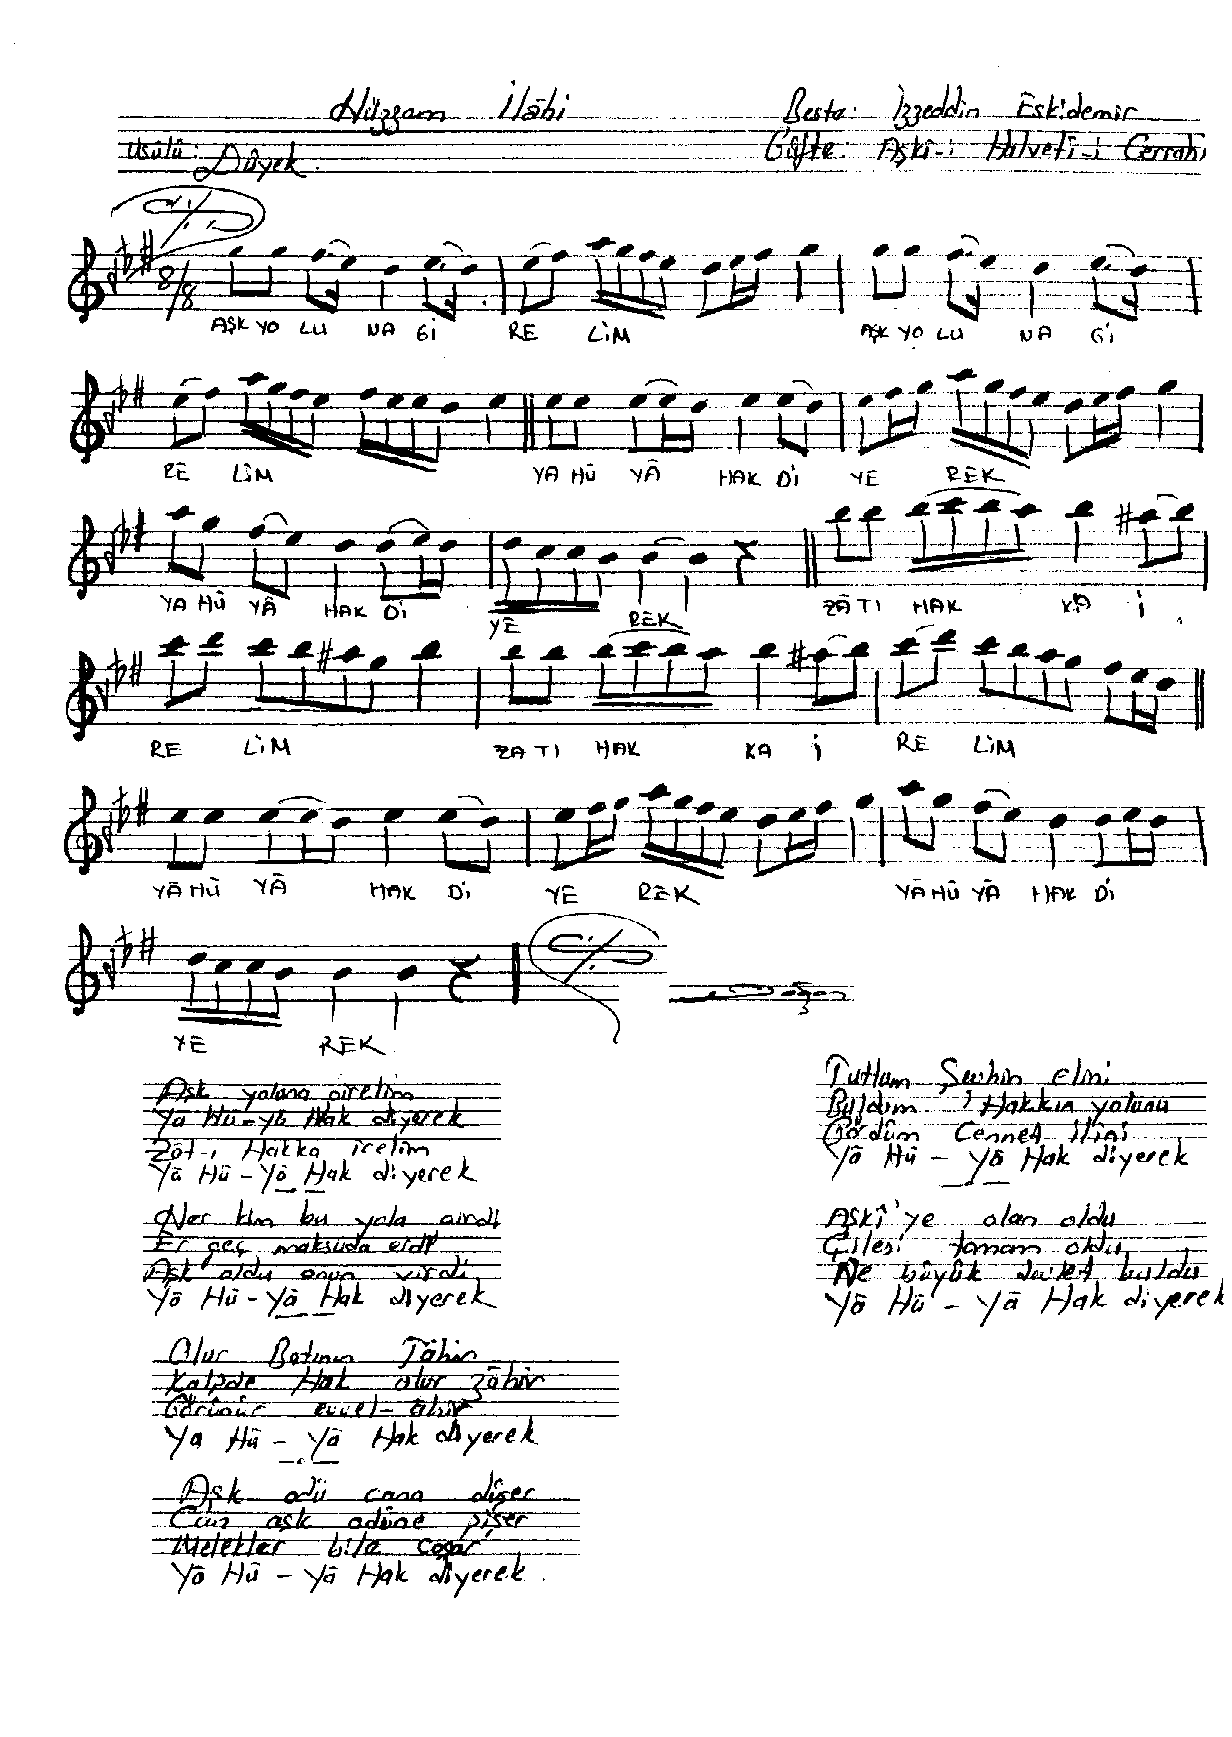 Hüzzam İlâhi
Beste: İzzeddin Eskidemir
Usûlü: Düyek
Güfte: Aşkî-i Halvetî-i Cerrahi
8/8
AŞK YO LU NA Gİ RE LİM AŞK YO LU NA Gİ
RE LİM YA HÛ YÂ HAK Dİ YE REK
YA HÛ YÂ HAK Dİ YE REK ZÂ TI HAK KA İ
RE LİM ZA TI HAK KA İ RE LİM
YÂ HÛ YÂ HAK Dİ YE REK YÂ HÛ YÂ HAK Dİ
YE REK
Aşk yoluna girelim
Yâ Hû - Yâ Hak diyerek
Zât-ı Hakka irelim
Yâ Hû - Yâ Hak diyerek
Her kim bu yola girdi
Er geç maksuda erdi
Aşk oldu onun virdi
Yâ Hû - Yâ Hak diyerek
Olur Batının Tâhir
Kalpde Hak olur zâhir
Görünür evvel - âhir
Ya Hû - Yâ Hak diyerek
Aşk odü cana düşer
Can aşk odüne pişer
Melekler bile coşar
Yâ Hû - Yâ Hak diyerek.
Tuttum Şeyhin elini
Buldum Hakkın yolunu
Gördüm Cennet ilini
Yâ Hû - Yâ Hak diyerek
Aşkî'ye olan oldu
Çilesi tamam oldu
Ne büyük devlet buldu
Yâ Hû - Yâ Hak diyerek